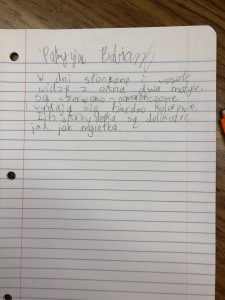 Patrycja
W dni słoneczne i wesołe
widzę z okna dwa motyle.
Są czerwono-pomarańczowe
wydają się bardzo kolorowe.
Ich skrzydełka są delikatne
jak jak mgiełka.